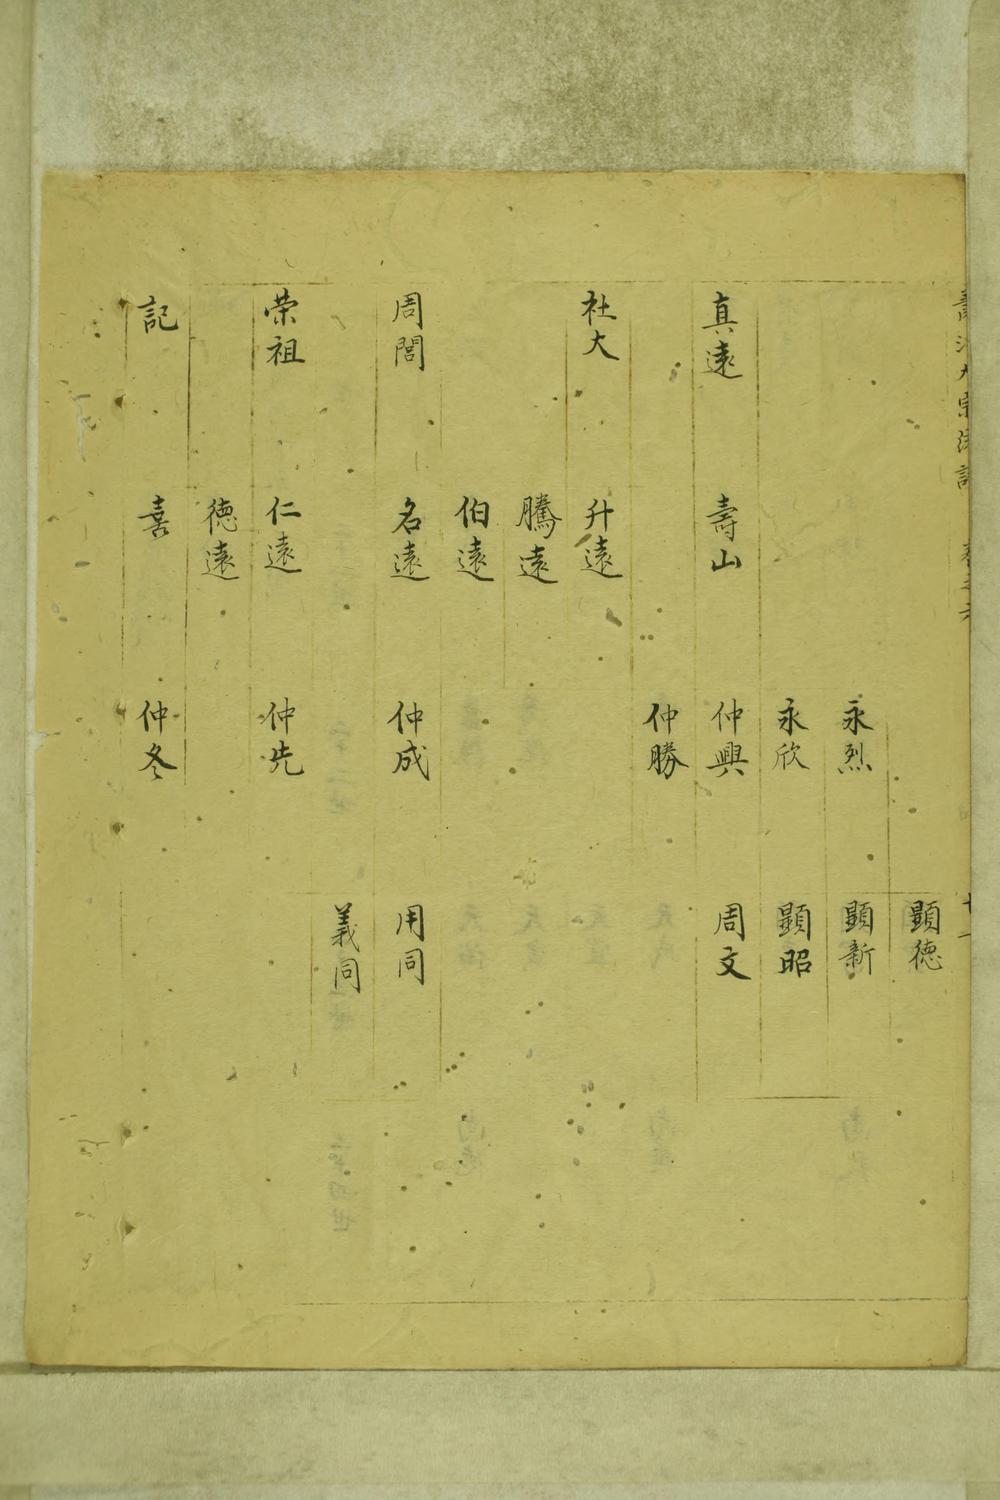 顯德
永烈
顯新
永欣
顯昭
真遠
壽山
仲興
周文
仲勝
社大
升遠
騰遠
伯遠
周閭
名遠
仲成
用同
義同
荣祖
仁遠
仲先
德遠
記
喜
仲冬